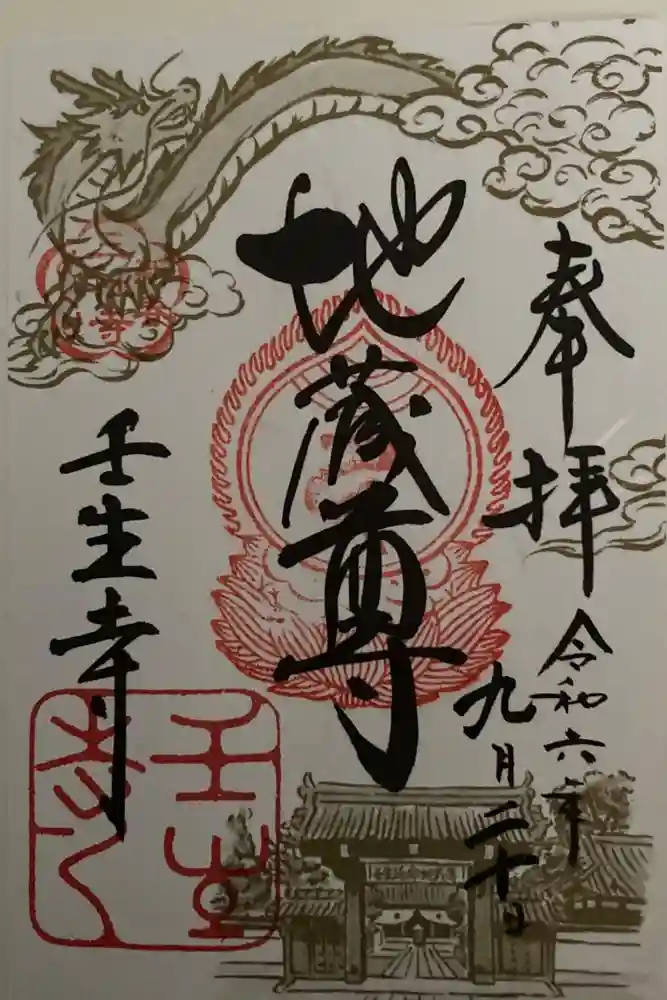 奉拝
令和六年
九月二十日
地蔵尊
壬生寺
壬生
寺印